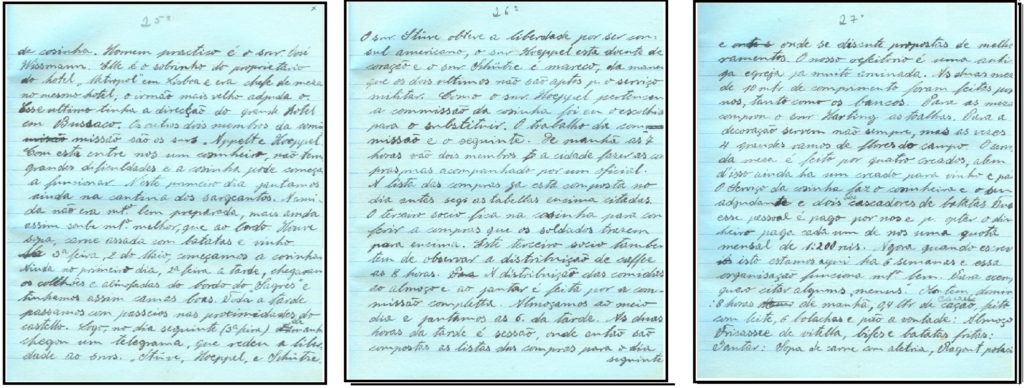 25º
de cosinha. Homem practico é o snr José
Wissmann. Elle é o sobrinho do proprietario
do hotel, Metropol em Lisboa e era chefe de mesa
no mesmo hotel, o irmão mais velho adjuda o.
Esse ultimo tinha a direcção do grande hotel
em Bussaco. Os outros dois membros da
missão são os snrs. Appelt e Hoeppel
Com este entre nos um cosinheiro, não tem
grandes dificuldades e a cosinha pode começa
a funcionar. N'este primeiro dia jantamos
ainda na cantina dos sargeantos. A comi
da não era mtº bem preparada, mais ainda
assim soube mtº melhor, que ao bordo. Houve
sopa, carne assada com batatas e vinho
3ª feira, 2 de Maio, começamos a cosinhar
Ainda no primeiro dia, 2ª feira a tarde, chegaram
os colchões e almofadas do bordo do Sagres e
tinhamos assim camas boas. Toda a tarde
passamos em passeios nas proximidades do
castello. Logo, no dia seguinte (3ª feira)
chegou um telegrama, que redeu a liber
dade ao snrs. Stüve, Hoeppel, e Schütze
26º
O snr Stüve obtive a liberdade por ser con
sul americano, o snr Hoeppel esta doente de
coração e o snr Schütze é marco, da maneira
que os dois ultimos não são aptos p. o serviço
militar. Como o snr. Hoeppel pertencia
a commissão da cosinha fui eu o escolhido
para o substituir. O trabalho da com
missão é o seguinte. De manha as 7
horas vão dois membros a cidade fazer as com
pras, mas acompanhado por um oficial.
A lista das compras ja esta composta no
dia antes segº as tabellas encima citadas.
O terceiro socio fica na cosinha para con
ferir a compras que os soldados trazem
para encima. Este terceiro socio tambem
tem de observar a distribuição de caffee
as 8 horas. A distribuição das comidas
ao almoço e ao jantar é feita por a com
missão completta. Almoçamos ao meio
dia e jantamos as 6. da tarde. As duas
horas da tarde é sessão, onde então são
compostas as listas das compras para o dia
seguinte
27º
e onde se discute propostas de melho
ramentos. O nosso refeitorio é uma anti
ga egreja ja muito arruinada. As duas mesas
de 10 mtº de comprimento foram feitas por
nos, tanto como os bancos. Para as mezas
comprou o snr Harting as toalhas. Para a
decoração servem não sempre, mas as vezes
4 grandes ramos de flores do campo. O
da mesa é feito por quatro creados, alem
d'isso ainda ha um creado para vinho e pão
O Serviço da cosinha faz o cosinheiro e o seu
adjudante e dois cascadores de batatas.
esse pessoal é pago por nos e p. obter o din
heiro paga cada um de nos uma quota
mensal de 1:200 reis. Agora quando escrevo
isto estamos aqui ha 8 semanas e essa
organisação funciona mtº bem. Para exem
quero citar alguns "menus": Ao tem, domin
: 8 horas de manhã, 1/4 ltr de cacao, feito
com leite, 6 bolachas e pão a vontade: Almoço
Fricassee de vitella, bifes e batatas fritas:
Jantar: Sopa de carne com aletria, Ragout